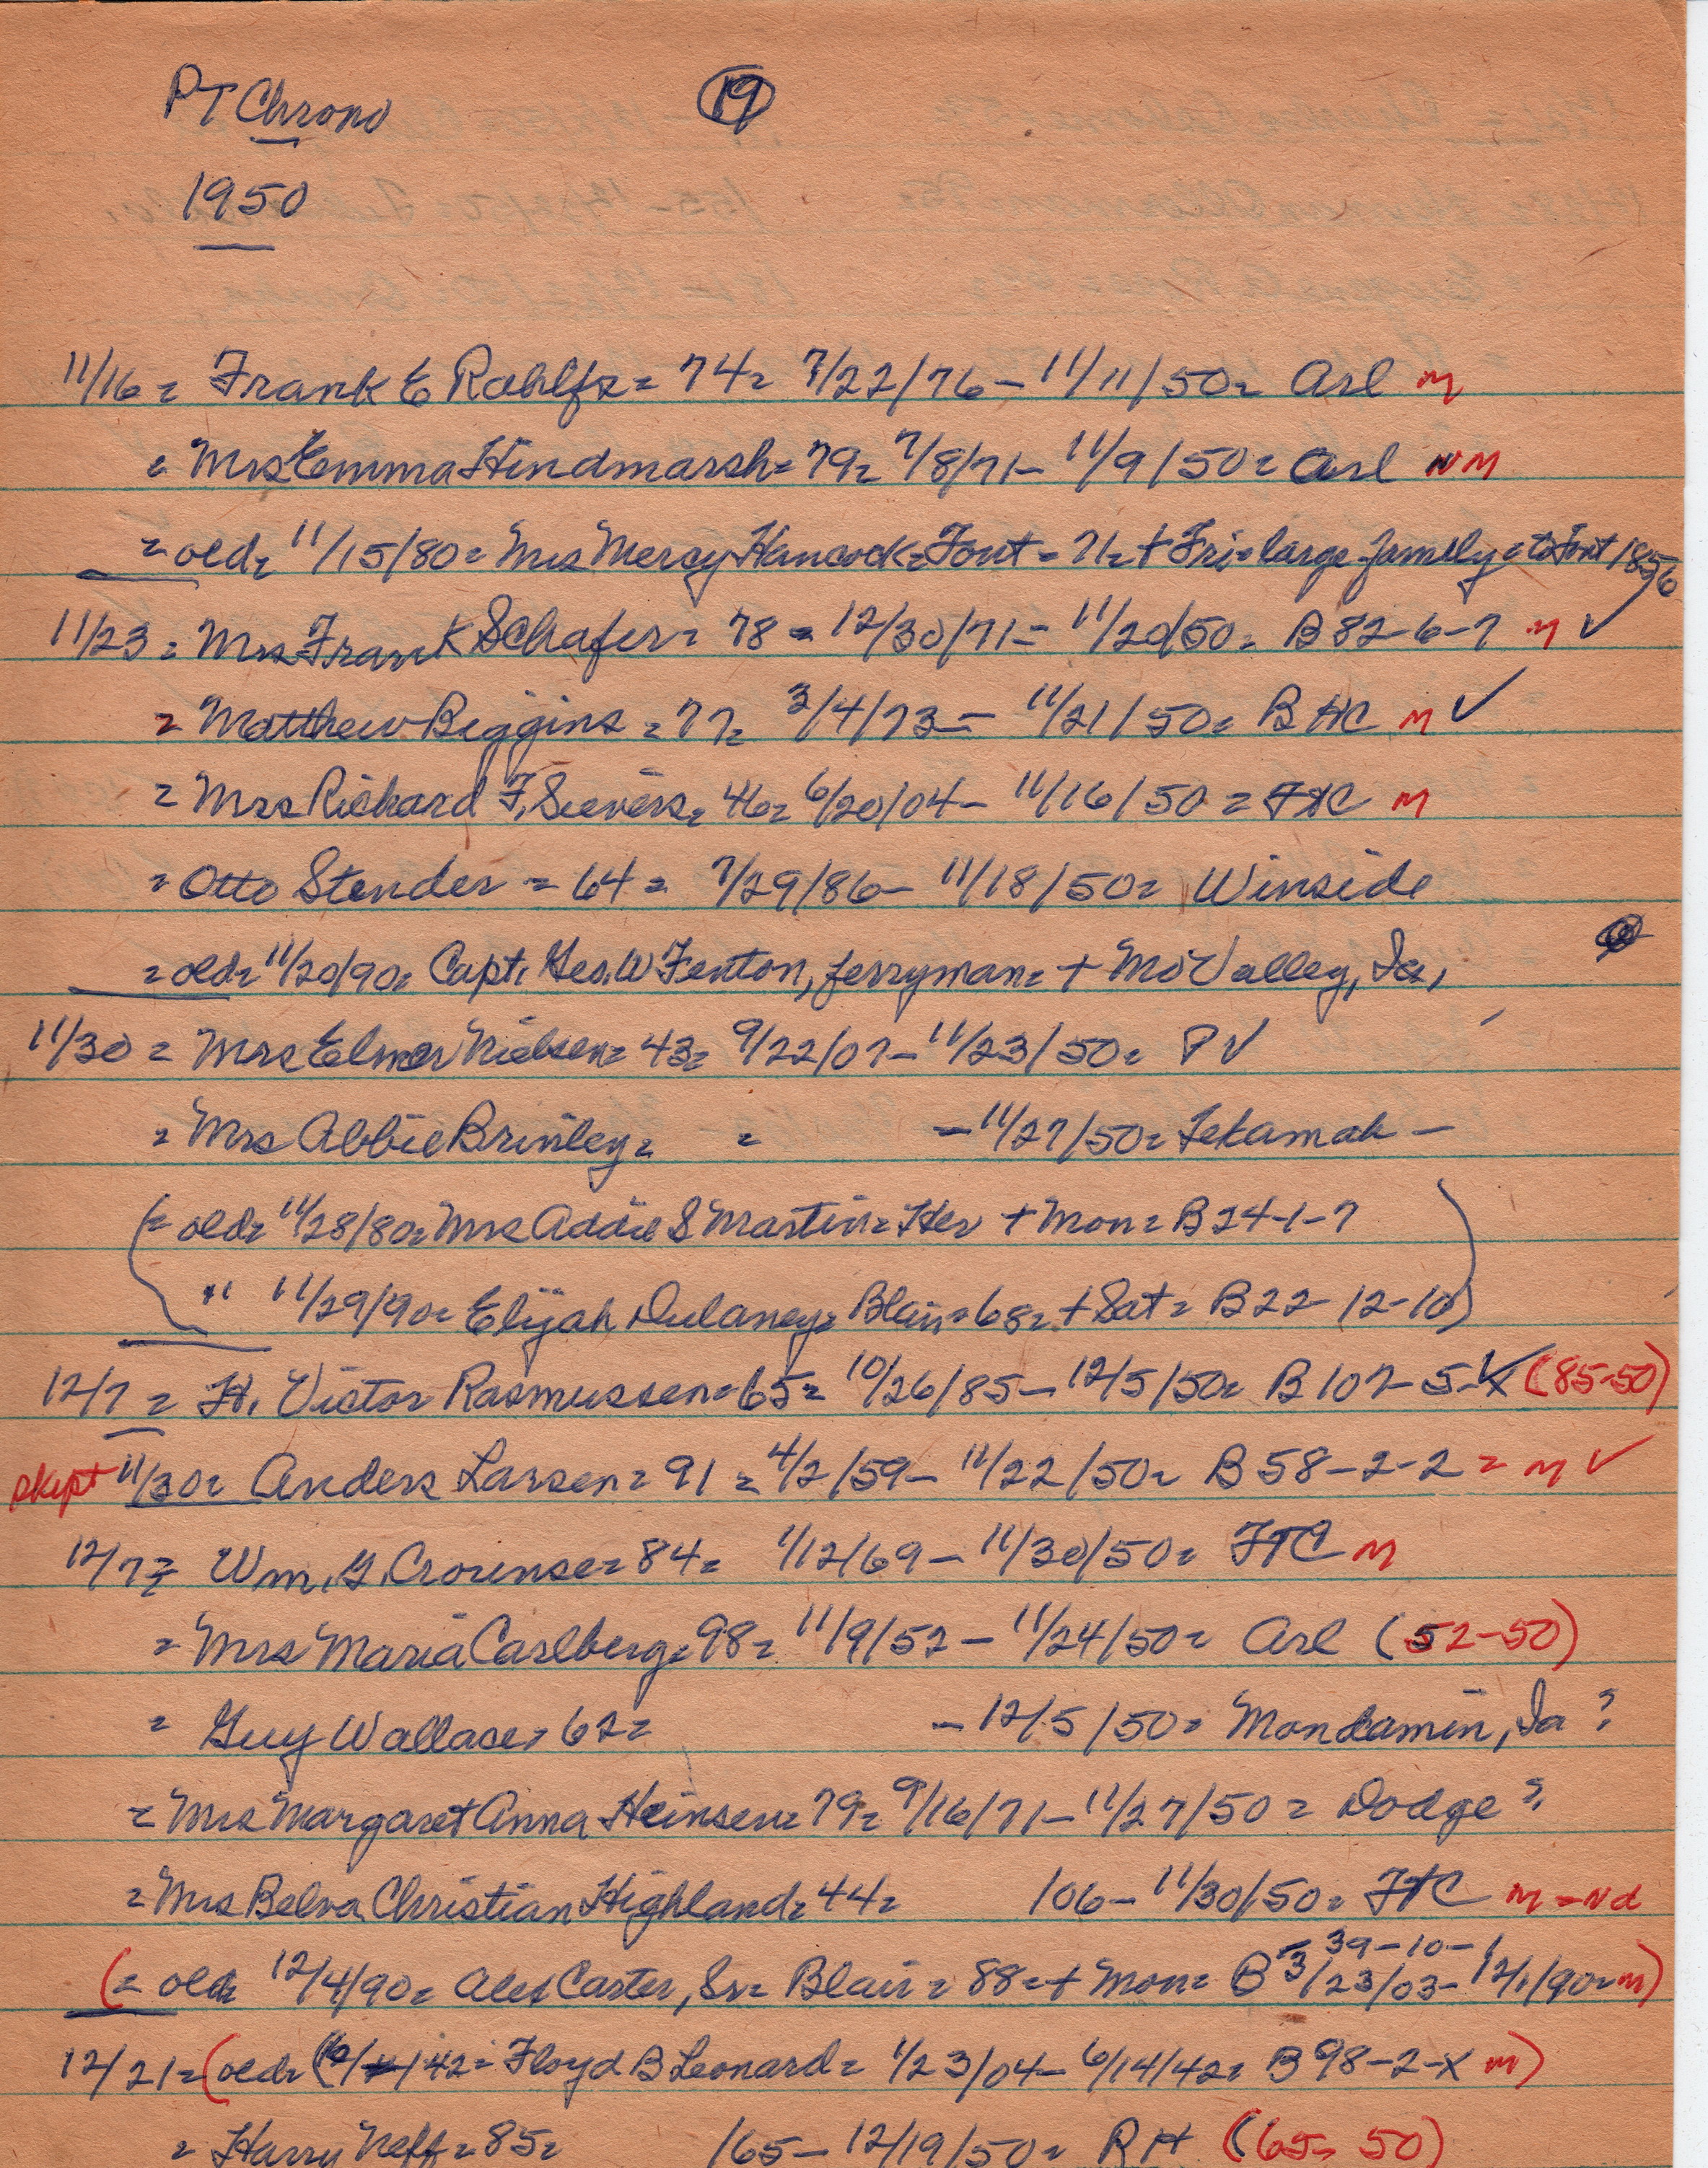 PT Chrono 19
1950
11/16 = Frank E Rohlfs = 74 = 7/22/76 - 11/11/50 = Arl M
= Mrs Emma Hindmarsh = 79 = 7/8/71 - 11/9/50 = Arl NM
= old = 11/15/80 = Mrs Mercy Hancock = Font = 71 = + Fri = large family = to Font 1856
11/23 = Mrs Frank Schafer = 78 = 12/30/71 - 11/20/50 = B 82-6-7 M ✓
= Matthew Biggins = 77 = 3/4/73 - 11/21/50 = B HC M ✓
= Mrs Richard F. Sievers = 46 = 6/20/04 - 11/16/50 = FTC M
= Otto Stender = 64 = 7/29/86 - 11/18/50 = Winside
= old = 11/20/90 = Capt. Geo. W Fenton, ferryman = + Mo Valley, Ia,
11/30 = Mrs Elmer Nielsen = 43 = 9/22/07 - 11/23/50 = PV
= Mrs Abbie Brinley = = - 11/27/50 = Tekamah -
(= old = 11/28/80 = Mrs Addie S Martin = Her + Mon = B 24-1-7
" 11/29/90 = Elijah Dulaney = Blair = 68 = + Sat = B 22-12-10)
12/7 = H. Victor Rasmussen = 65 = 10/26/85 - 12/5/50 = B 107-5-X (85-50)
skipt 11/30 = Anders Larsen = 91 = 4/2/59 - 11/22/50 = B 58-2-2 = M ✓
12/7 = Wm. G. Crounse = 84 = 1/12/69 - 11/30/50 = FTC M
= Mrs Maria Carlberg = 98 = 11/9/52 - 11/24/50 = Arl (52-50)
= Guy Wallace = 62 = - 12/5/50 = Mondamin, Ia ?
= Mrs Margaret Anna Heinsen = 79 = 9/16/71 - 11/27/50 = Dodge ?
= Mrs Belva Christian Highland = 44 = /06 - 11/30/50 = FTC M = Nd
39-10-1
(= old = 12/4/90 = Alex Carter, Sr = Blair = 88 = + Mon = B 3/23/03 - 12/1/90 = M)
12/21 = (old = /42 = Floyd B Leonard = 1/23/04 - 6/14/42 = B 98-2-X M)
= Harry Neff = 85 = /65 - 12/19/50 = RH (65-50)